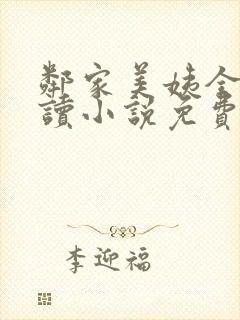 鄰家美姨全
讀小說免費
李迎福